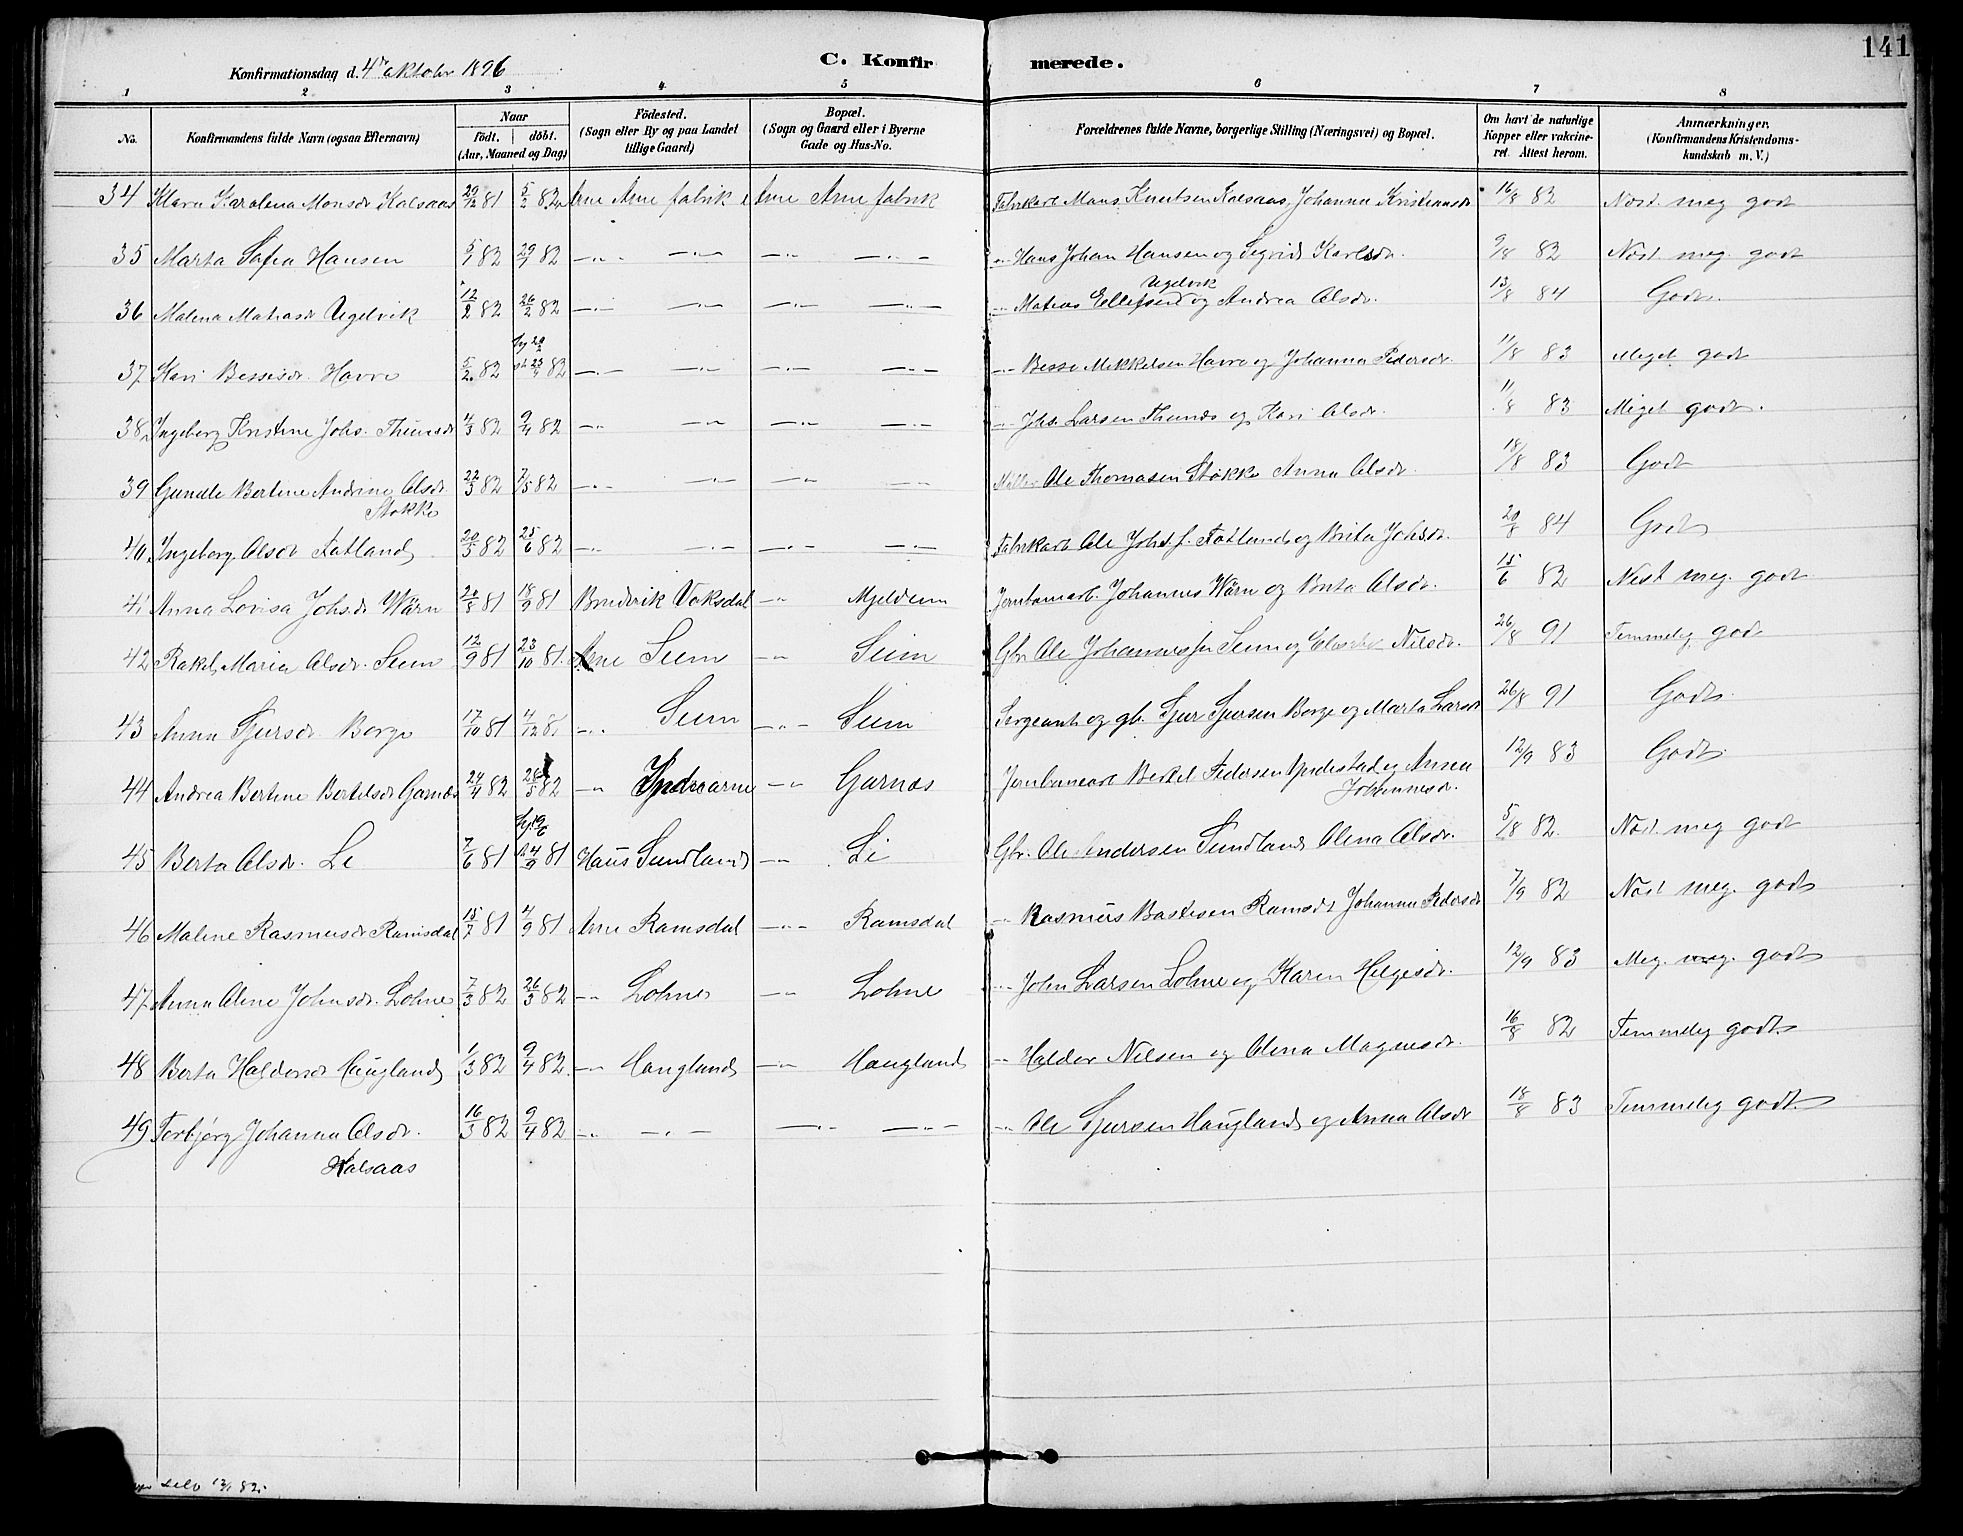 141
Konfirmationsdag d. 4de oktober 1896
C. Konfirmerede.
1 2 3 4 5 6 7 8
No. Konfirmandens fulde Navn (ogsaa Efternavn) Naar födt. döbt. (Aar, Maaned og Dag) Födested. (Sogn eller By og paa Landet tillige Gaard) Bopæl. (Sogn og Gaard eller i Byerne Gade og Hus-No. Forældrenes fulde Navne, borgerlige Stilling (Næringsvei) og Bopæl. Om havt de naturlige Kopper eller vakcineret. Attest herom. Anmærkninger, (Konfirmandens Kristendomskundskab m. V.)
34 Klara Karolina Monsdr Kalsaas 29/12 81 5/2 82 Arne Arne fabrik Arne Arne fabrik Fabrikarb. Mons Knutsen Kalsaas, Johanna Kristiansdr 16/8 82 Næst. meg godt
35 Marta Sofia Hansen 5/1 82 29/1 82 -"- -"- -"- -"- -"- Hans Johan Hansen og Sigrid Karlsdr. 9/8 82 Næst. meg. godt
36 Malena Matiasdr Ugelvik 12/2 82 26/2 82 -"- -"- -"- -"- -"- Matias Ellefsen Ugelvik og Andrea Olsdr. 13/8 84 Godt.
37 Kari Bessesdr. Havre 5/2 82 82 -"- -"- -"- -"- -"- Besse Mikkelsen Havre og Johanna Pedersdr. 11/8 83 Meget godt
38 Ingeborg Kristine Johs. Thunæs 4/3 82 9/4 82 -"- -"- -"- -"- -"- Johs. Larsen Thunæs og Kari Olsdr. 11/8 83 Meget godt.
39 Gundle Bertine Andrine Olsdr Stokke 22/3 82 7/5 82 -"- -"- -"- -"- Møller Ole Thomasen Stokke Anna Olsdr. 18/8 83 Godt
40 Ingeborg Olsdr Fatland 20/5 82 25/6 82 -"- -"- -"- -"- Fabrikarb Ole Johs.f. Fatland og Brita Johsdr. 20/8 84 Godt
41 Anna Lovisa Johsdr Wärn 20/8 81 18/9 81 Bruvik Vaksdal -"- Mjeldeim Jernbanearb. Johannes Wärn og Brita Olsdr. 15/6 82 Næst meg. godt
42 Rakel Maria Olsdr. Seim 12/9 81 23/10 81. Arne Seim -"- Seim Gbr. Ole Johannesen Seim og Nilsdr. 26/8 91 Temmelig godt
43 Anna Sjursdr. Borge 17/10 81 4/12 81 -"- Seim -"- Seim Sergeant og gb. Sjur Sjursen Borge og Marta Larsdr 26/8 91 Godt.
44 Andrea Bertine Bertelsdr Garnæs 24/4 82 28/5 82 -"- Indrearne -"- Garnæs Jernbanearb Bertel Pedersen og Anna Johannesdr. 12/9 83 Godt.
45 Berta Olsdr. Li 7/6 81 81 Haus Sundland -"- Li Gbr. Ole Andersen Sundland Olena Olsdr. 5/8 82. Næst meg godt
46 Maline Rasmusdr Ramsdal 15/7 81 4/9 81 Arne Ramsdal -"- Ramsdal -"- Rasmus Bastesen Ramsdal Johanna Pedersdr 7/9 82 Næst meg. godt
47 Anna Oline Johnsdr. Lohne 7/3 82 26/3 82 -"- Lohne -"- Lohne -"- John Larsen Lohne og Karen Helgesdr. 12/9 83 Meg. meg. godt
48 Berta Haldorsdr Haugland 1/3 82 9/4 82. -"- Haugland -"- Haugland -"- Haldor Nilsen og Olena Magnusdr. 16/8 82 Temmelig godt
49 Torbjørg Johanna Olsdr. Kalsaas 16/3 82 9/4 82 -"- -"- -"- -"- -"- Ole Sjursen Haugland og Anna Olsdr 18/8 83 Temmelig godt.